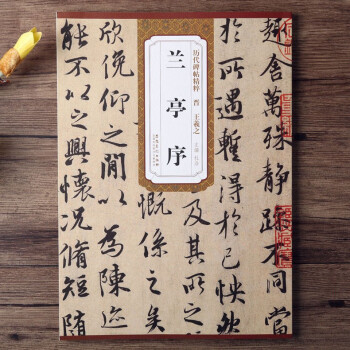 趣舍萬殊靜躁不同當
於所遇蹔得於己怏然
历代碑帖精粹 晋 王羲之
兰亭序
及其所之
慨係之矣
欣俛仰之閒以爲陳迹
能不以之興懷況脩短隨